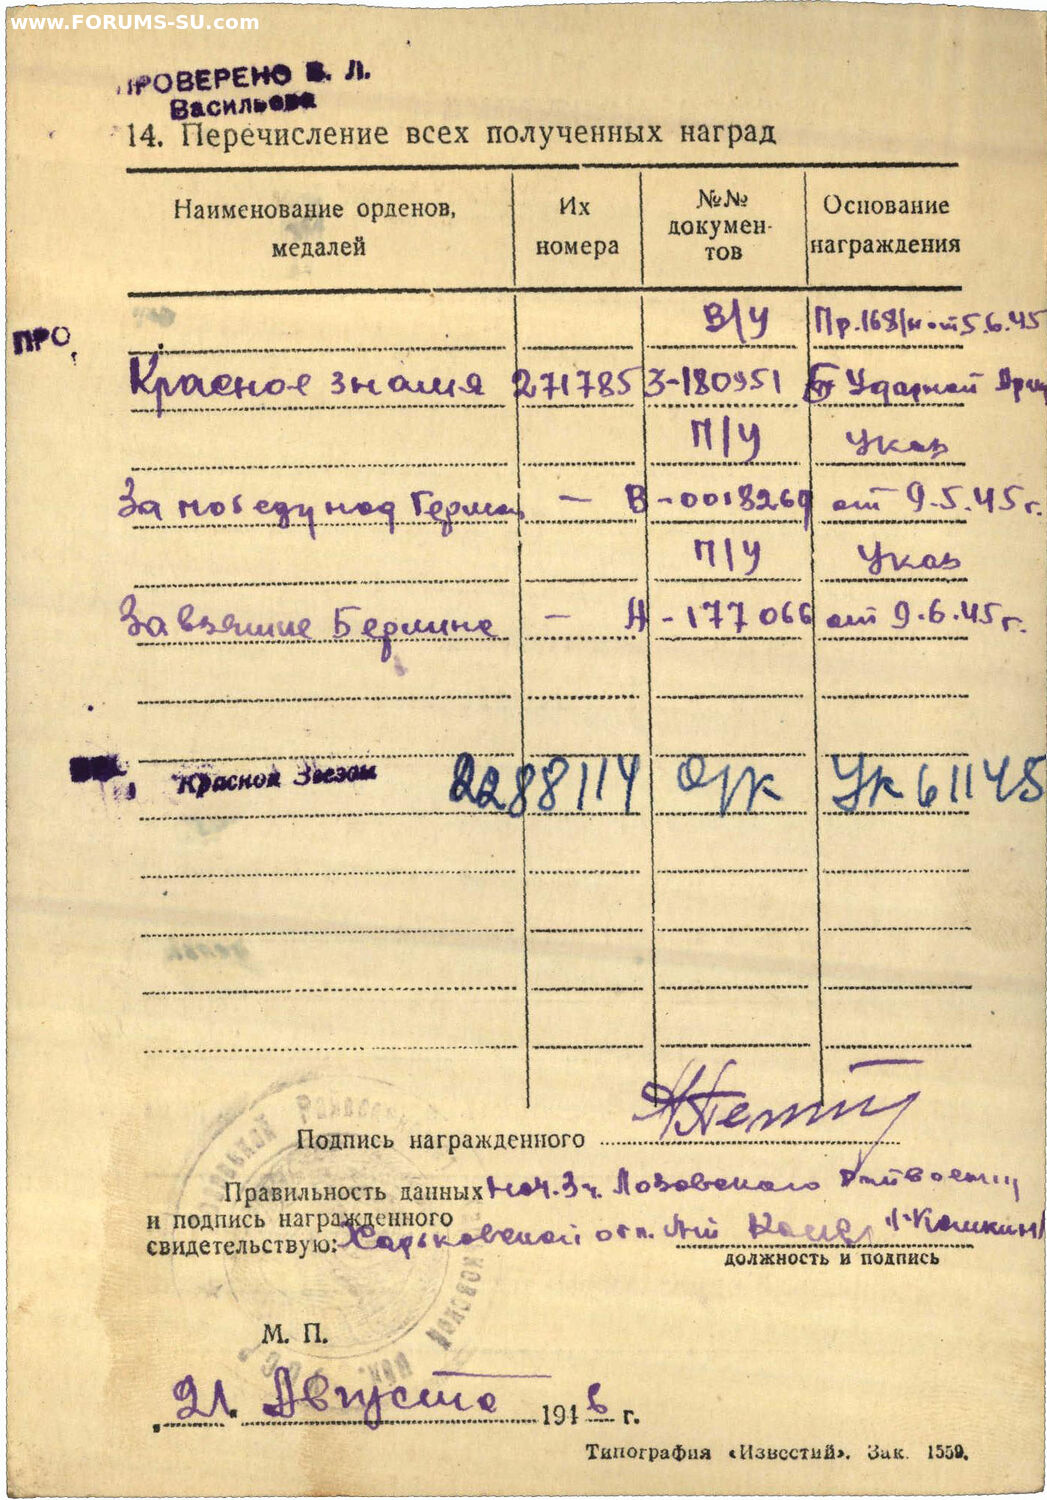 www.FORUMS-SU.com
ПРОВЕРЕНО В. Л.
Васильева
14. Перечисление всех полученных наград
Наименование орденов, медалей
Их номера
№№ докумен-
тов
Основание награждения
В/У Пр.168/н от 5.6.45
ПРО
Красное знамя 271785 З-180951 5 Ударной Арм
П/У Указ
За победу над Герман — В-0018269 от 9.5.45 г.
П/У Указ
За взятие Берлина — А-177066 от 9.6.45 г.
Красной Звезды 2288114 О/К Ук 61145
Подпись награжденного
Правильность данных Нач. 3 ч. Лозовского
и подпись награжденного
свидетельствую: Харьковской обл.
должность и подпись
М. П.
„21" Августа 1946 г.
Типография «Известий». Зак. 1559.